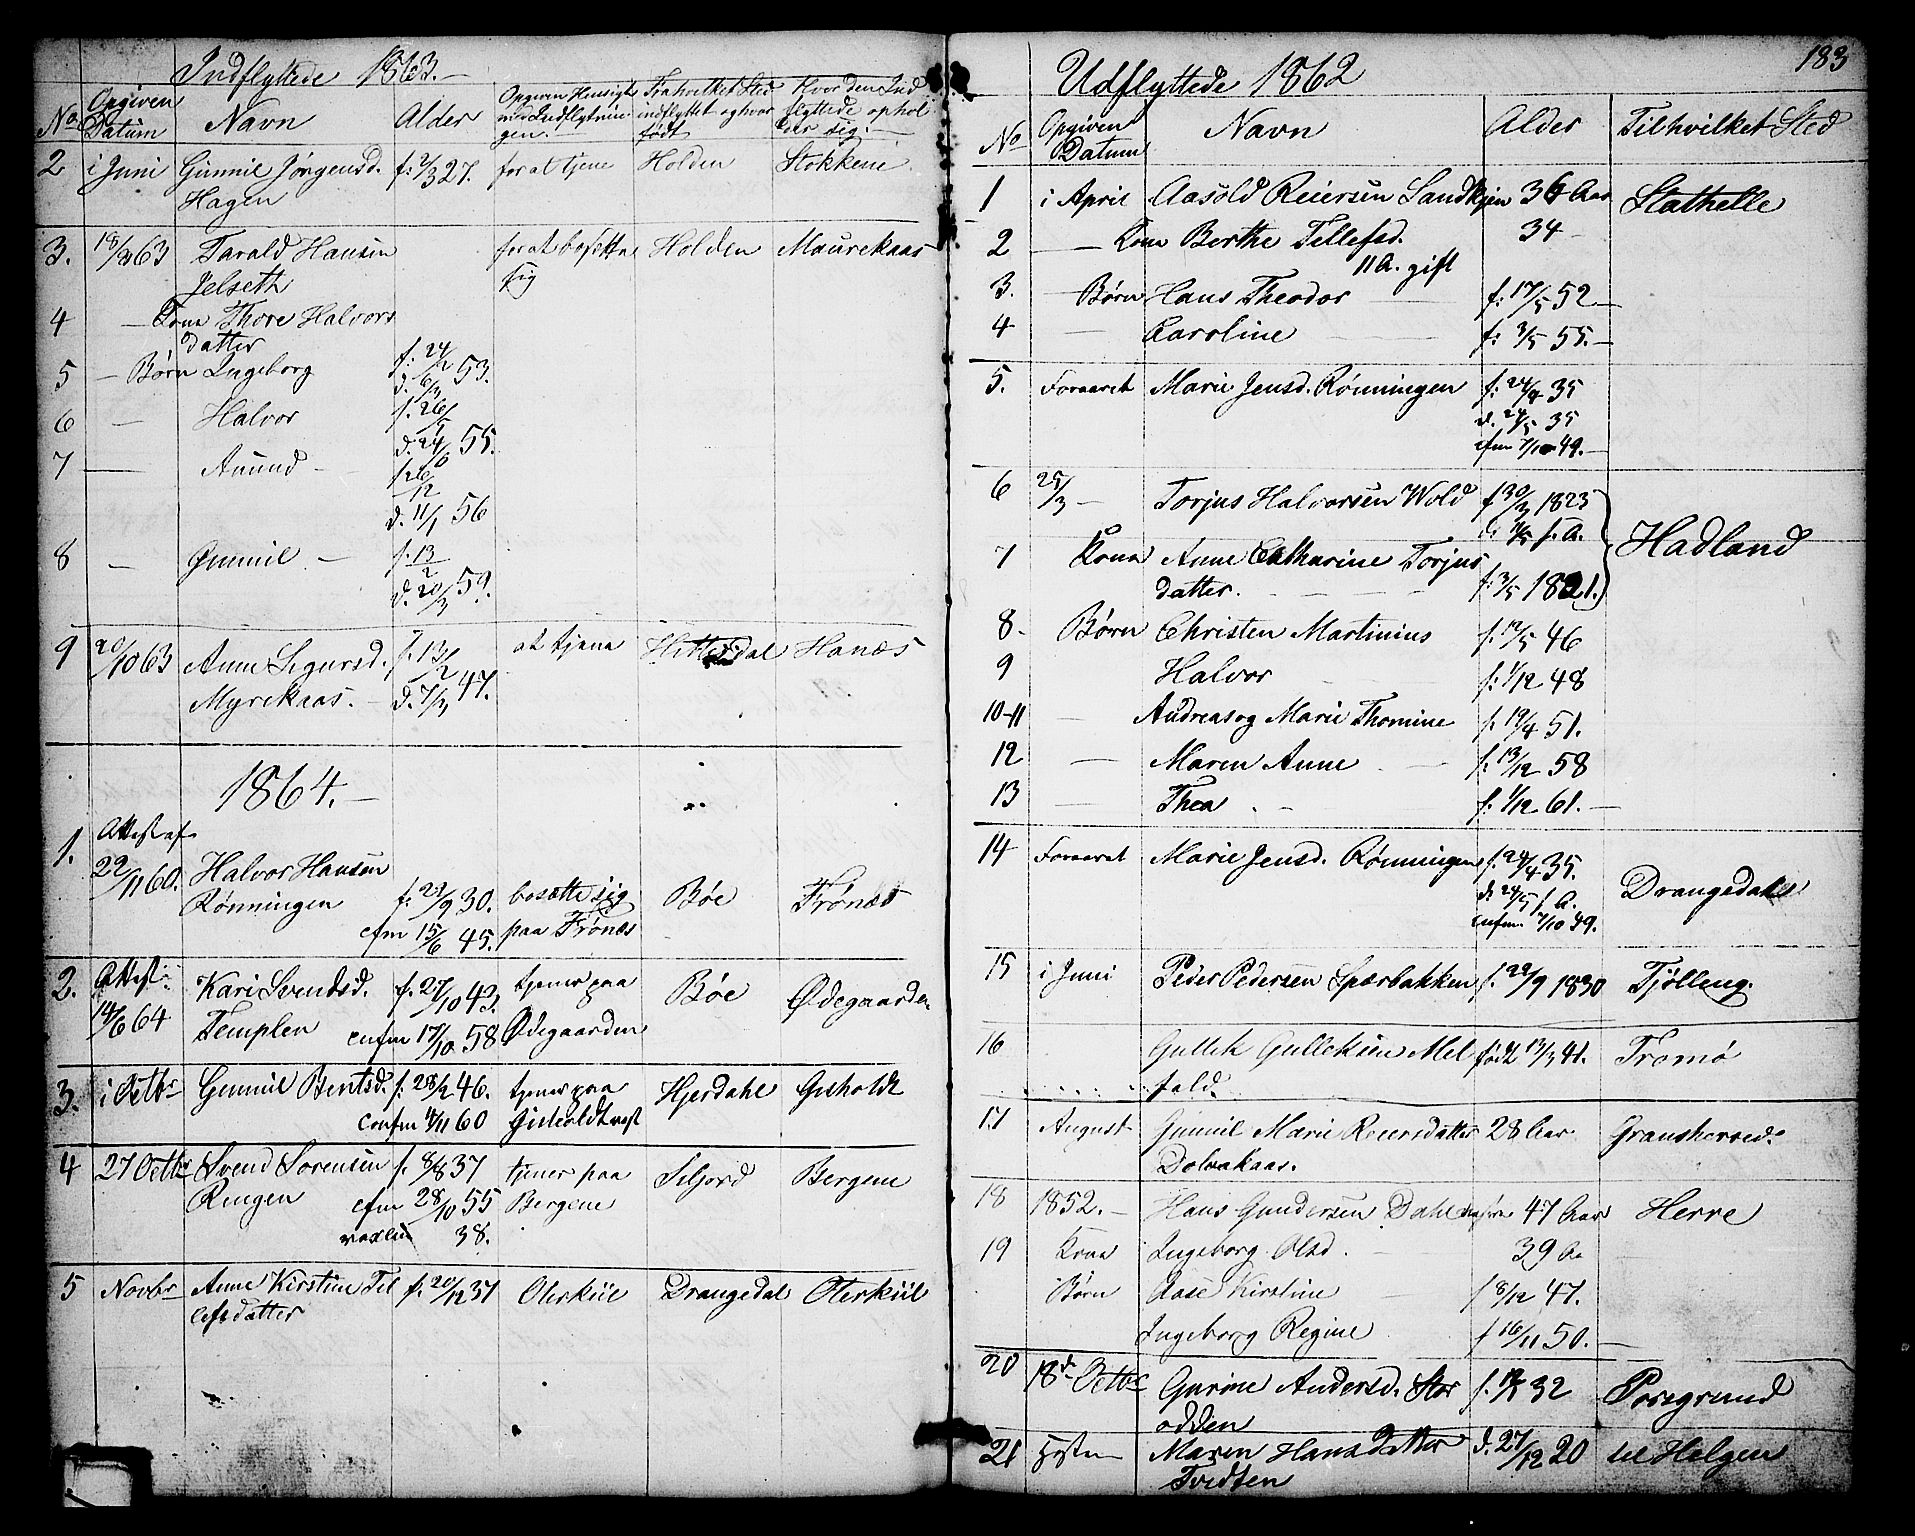 Indflyttede 1863.
No Opgiven Datum Navn Alder Opgiven Hensigt med Indflytningen. Fra hvilket Sted indflyttet og hvor født Hvor den Indflyttede opholder sig.
2 i Juni Gunnil Jørgensd. f: 2/3 27. for at tjene Holden Stokkene
Hagen
3. 18/ 63 Tarald Hansen for at bosette Holden Maurekaas
Jelseth sig
4 — Kona Thore Halvors
datter
5 — Børn Ingeborg f. 24/12 53.
d. 6/3
6 — Halvor f. 26/
d. 24/6 55.
7 — Amund — f 26/12
d. 11/1 56
8 — Gunnil — f. 13/2
d. 20/3 59.
9 20/10 63 Anne Sigursd. f. 13/2 47. at tjene Hittesdal Hanæs
Myrekaas. — d. 7/3
1864.—
1. Attest af
22/11 60. Halvor Hansen
Rønningen f: 21/9 30. bosætte sig Bøe Frønæs
cfm 15/6 45. paa Frønæs
2. Attest Kari Svendsd. f. 27/10 43. tjener paa Bøe Ødegaarden
14/6 64 Templen confm 17/10 58 Ødegaarden
3. i Octbr Gunnil Bentsd. f. 28/2 46. tjener paa Hjerdahl Gisholdt
confm 4/11 60 Gisholdt vest
4 27 Octbr Svend Sorensen f. 8/8 37 tjener paa Seljord Bergene
Ringen cfm 28/10 55 Bergene
vaxcin 38.
5 Novbr Anne Kirstine Til f. 20/12 37 Oterkiil Drangedal Oterkiil
lefsdatter
183
Udflyttede 1862
No Opgiven Datum Navn Alder Til hvilket Sted
1 i April Aasold Reiersen Sandkjen 36 Aar Stathelle
2 — Kona Berthe Tellefsd. 34
11 A. gift
3. — Børn Hans Theodor f: 17/5 52.—
4 — Caroline f: 3/5 55.—
5. Foraaret Marie Jensd. Rønningen f: 24/4 35
d. 24/5 35
cfm 7/10 49.—
6 25/3 — Torjus Halvorsen Wold f 30/3 1823
f. A.
Hadland
7 Kona Anne Catharine Torjus
datter. f: 3/5 1821.
8- Børn Christen Martinius f. 12/5 46
9 Halvor f: 1/12 48
10-11 — Andreas og Marie Thomine f. 19/4 51.
12 — Maren Anne f: 13/12 58
13 — Thea f: 1/12 61.—
14 Foraaret Marie Jensd. Rønningen f. 24/4 35.
d. 24/5 f. A. Drangedahl
confm. 7/10 49.
15 i Juni Peder Pedersen Spærbakken f. 22/9 1830 Tjølleng.
16 Gullik Gulleksen Mel født 13/3 41. Tromø
fald.
17 August Gunnil Marie Reiersdatter 28 Aar Gransherred.
Dolvakaas.
18 1852.— Hans Gundersen Dahl 47 Aar Herre
19 Kona Ingeborg Olsd. — 39 Aa
Børn Aase Kirstine f 8/12 47.
Ingeborg Regine f 16/11 50.—
20 18d Octbr Gurine Andersd. Stor f. 32 Porsgrund
odden
21 Høsten Maren Hansdatter d. 27/12 20 til Helgen
Tvedten